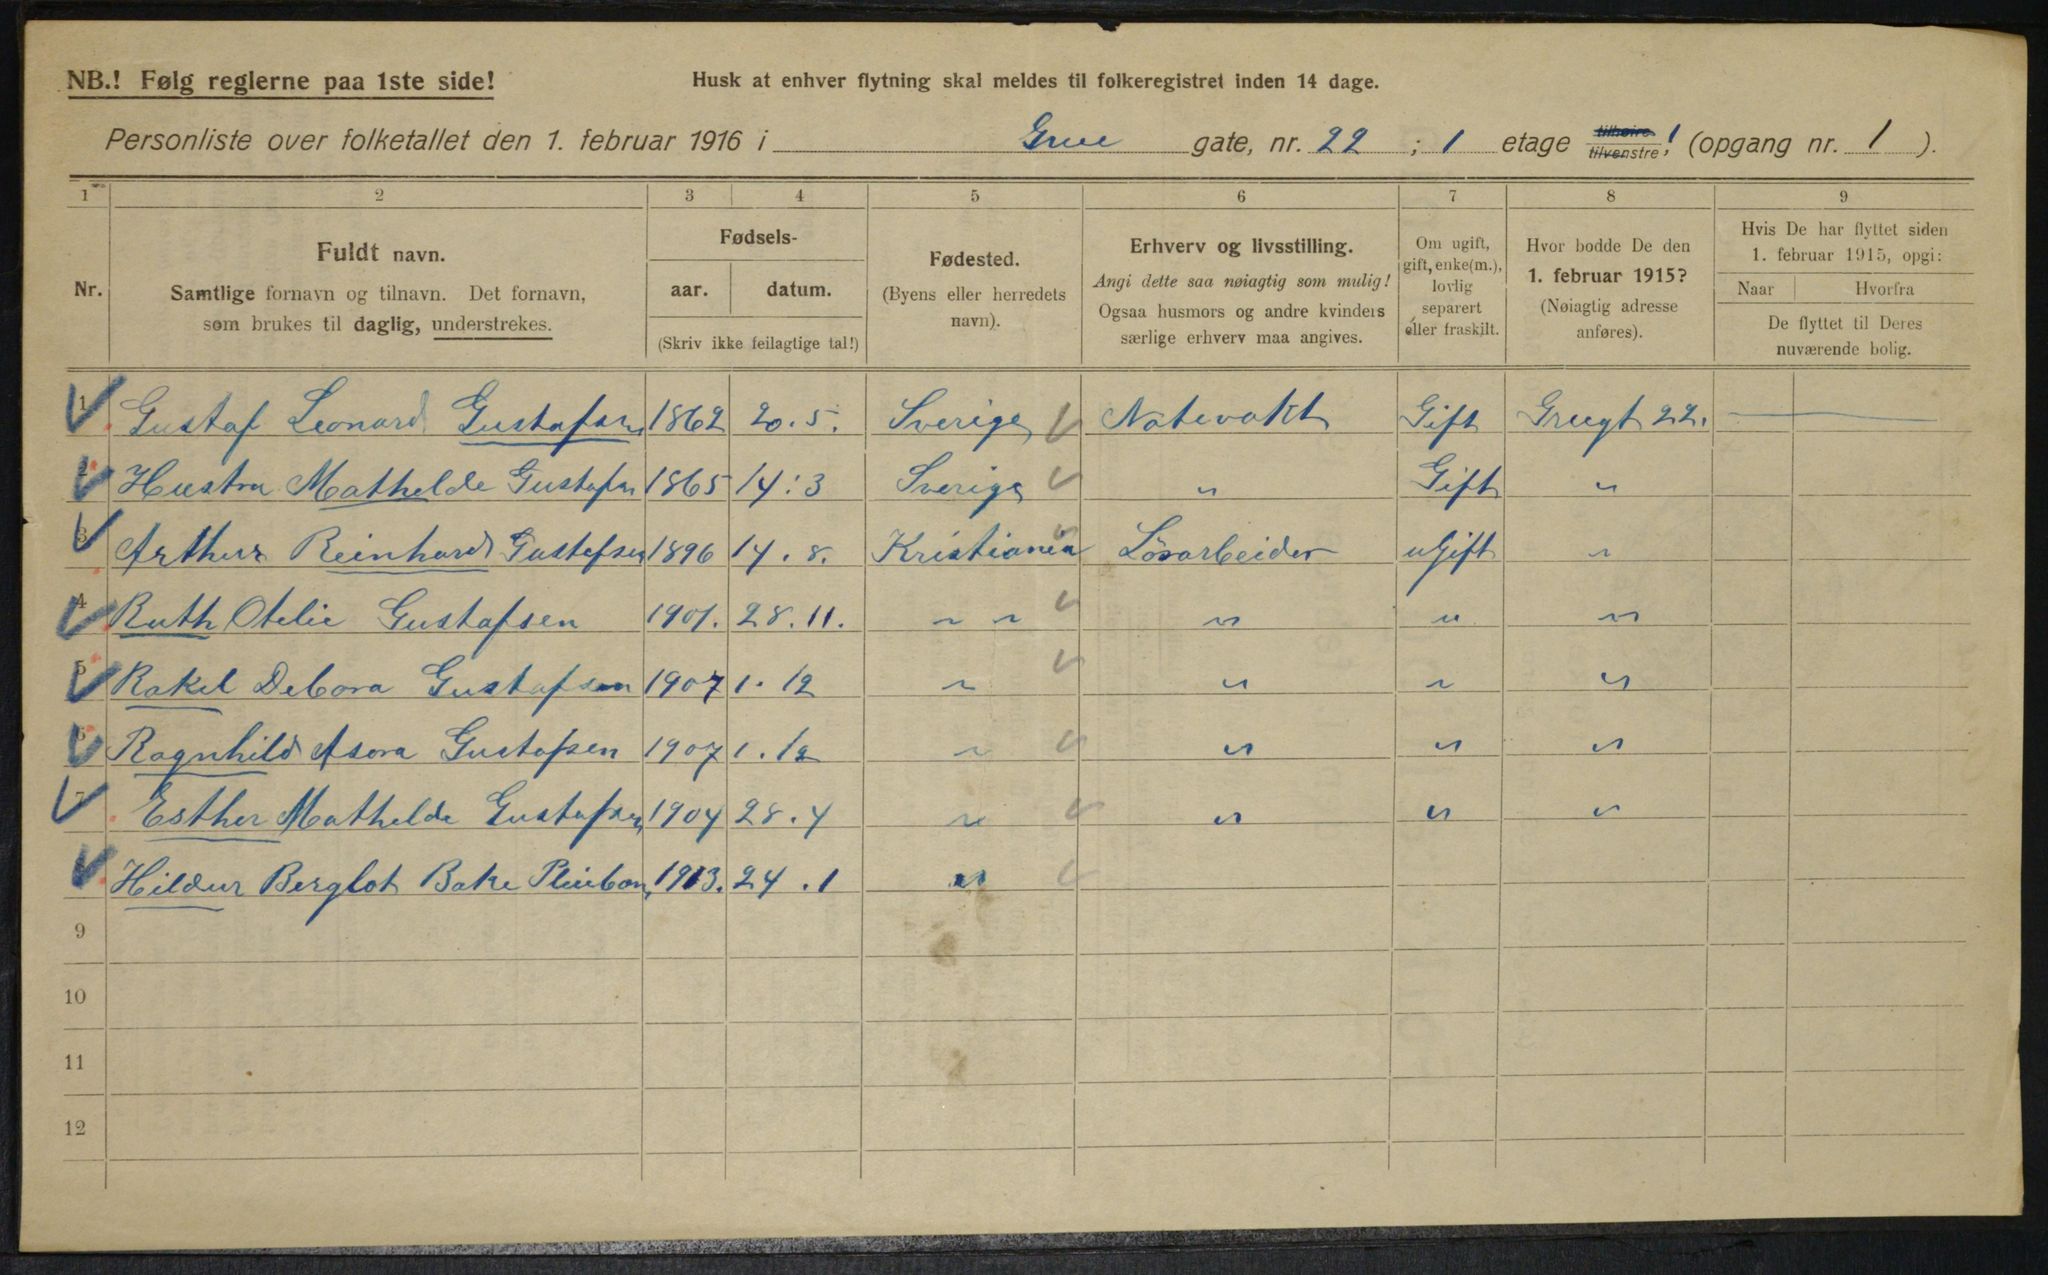 NB.! Følg reglerne paa 1ste side!
Husk at enhver flytning skal meldes til folkeregistret inden 14 dage.
Personliste over folketallet den 1. februar 1916 i Grue gate, nr. 22 ; 1 etage tilhøire tilvenstre, ! (opgang nr. 1 ).
1 2 3 4 5 6 7 8 9
Nr.
Fuldt navn.
Samtlige fornavn og tilnavn. Det fornavn,
som brukes til daglig, understrekes.
Fødsels-
aar. datum.
(Skriv ikke feilagtige tal!)
Fødested.
(Byens eller herredets
navn).
Erhverv og livsstilling.
Angi dette saa nøiagtig som mulig!
Ogsaa husmors og andre kvinders
særlige erhverv maa angives.
Om ugift,
gift, enke(m.),
lovlig
separert
eller fraskilt.
Hvor bodde De den
1. februar 1915?
(Nøiagtig adresse
anføres).
Hvis De har flyttet siden
1. februar 1915, opgi:
Naar Hvorfra
De flyttet til Deres
nuværende bolig.
1 Gustaf Leonard Gustafsen 1862 20.5. Sverige Natevakt Gift Gruegt 22.
2 Hustru Mathelde Gustafsen 1865 14:3 Sverige " Gift "
3 Arthur Reinhard Gustafsen 1896 14.8. Kristiania Løsarbeider uGift "
4 Ruth Otelie Gustafsen 1901. 28.11. " " " " "
5 Rakel Debora Gustafsen 1907 1.12 " " " "
6 Ragnhild Asora Gustafsen 1907 1.12 " " " "
7 Esther Mathelde Gustafsen 1904 28.4 " " " "
8 Hildur Berglot Bake 1913. 24.1 "
9
10
11
12